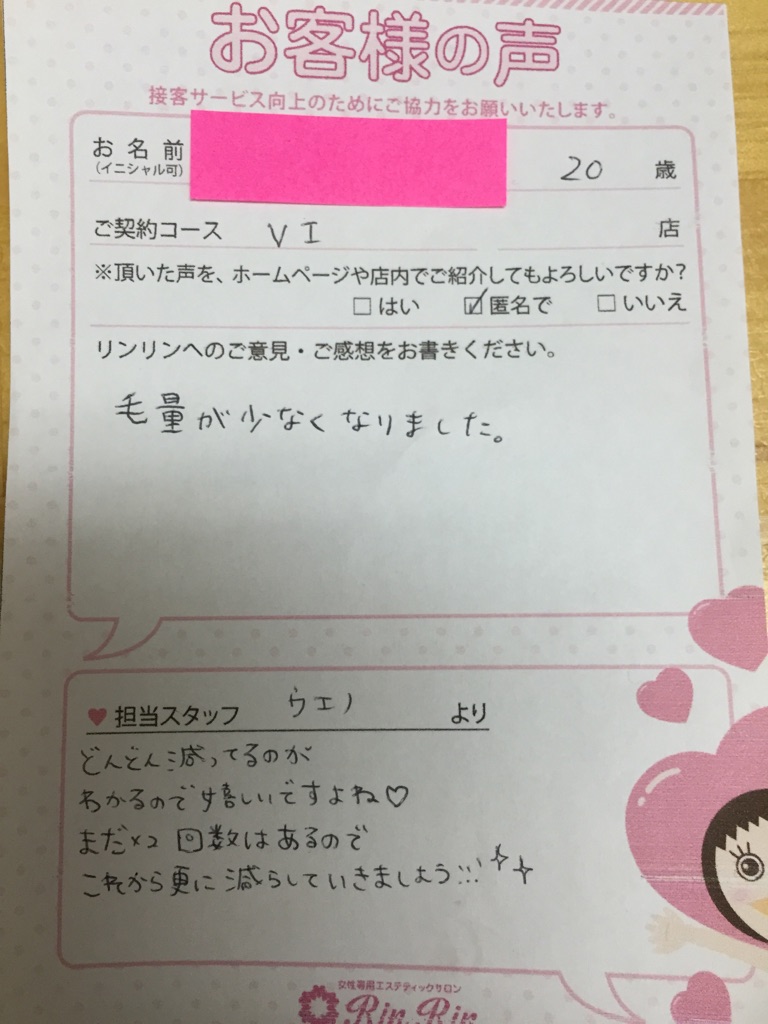 お客様の声
接客サービス向上のためにご協力をお願いいたします。
お名前 20 歳
(イニシャル可)
ご契約コース VI 店
※頂いた声を、ホームページや店内でご紹介してもよろしいですか?
□はい ☑匿名で □いいえ
リンリンへのご意見・ご感想をお書きください。
毛量が少なくなりました。
♥担当スタッフ ウエノ より
どんどん減ってるのが
わかるので嬉しいですよね♡
まだ×2 回数はあるので
これから更に減らしていきましょう!!!
女性専用エステティックサロン
Rin Rin